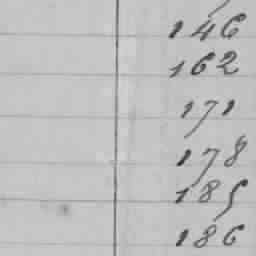 146
162
171
178
185
186